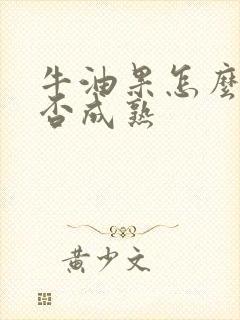 牛油果怎麼
否成熟
黄少文